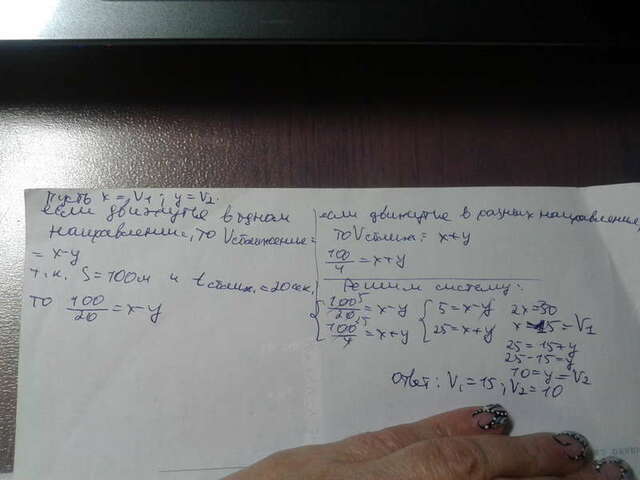 Пусть x = V1; y = V2.
если движутье в одном
направлении, то Vсближение =
= x-y
т.к. S = 100м и t сближ. = 20сек,
то 100/20 = x-y
если движутье в разных направления,
то Vсближ. = x+y
100/4 = x+y
Решим систему:
100/20 = x-y
100/4 = x+y
5 = x-y
25 = x+y
2x = 30
x = 15 = V1
25 = 15+y
25-15 = y
10 = y = V2
Ответ: V1 = 15; V2 = 10